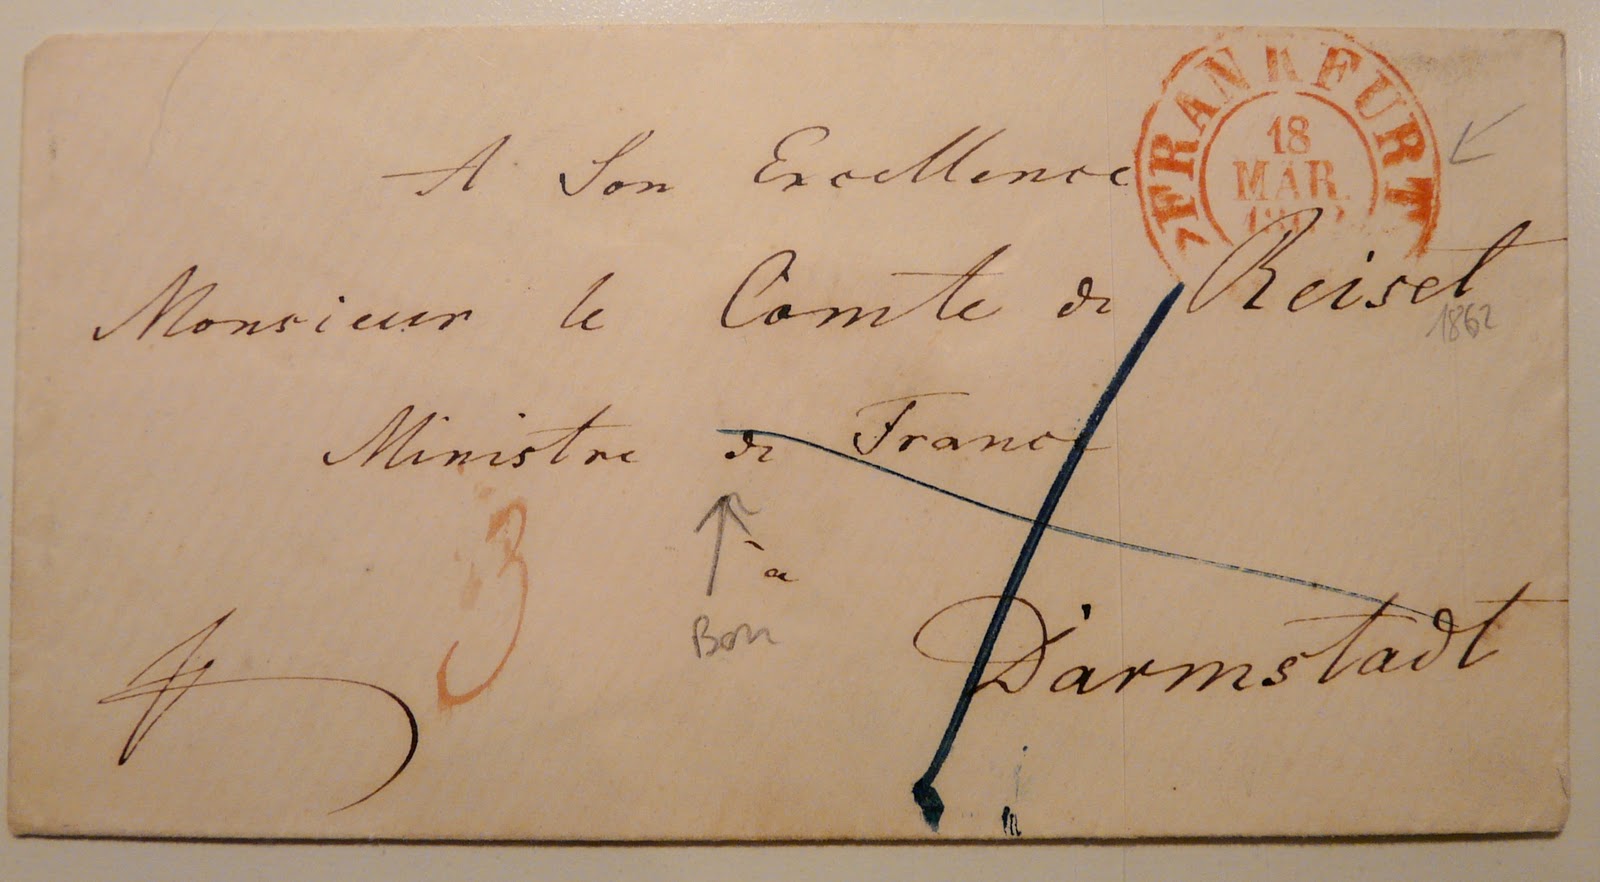 FRANKFURT
18
MÄR.
A Son Excellence
Monsieur le Comte de Reiset
1862
Ministre de France
à
3
Bon
Darmstadt